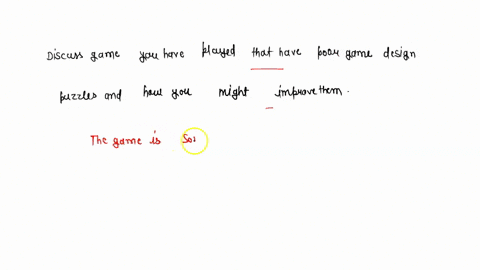 Discuss game you have played that have poor game design
puzzles and how you might improve them.
The game is So